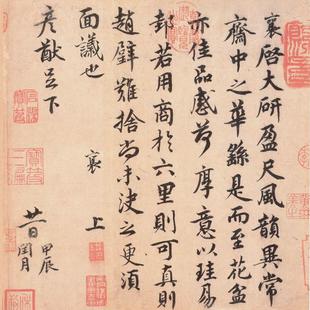 襄啓大研盈尺風韻異常
齋中之華繇是而至花盆
亦佳品感荷厚意以珪易
邽若用商於六里則可真則
趙璧難捨尚未決之更須
面議也 襄上
彥猷足下
甲辰閏月